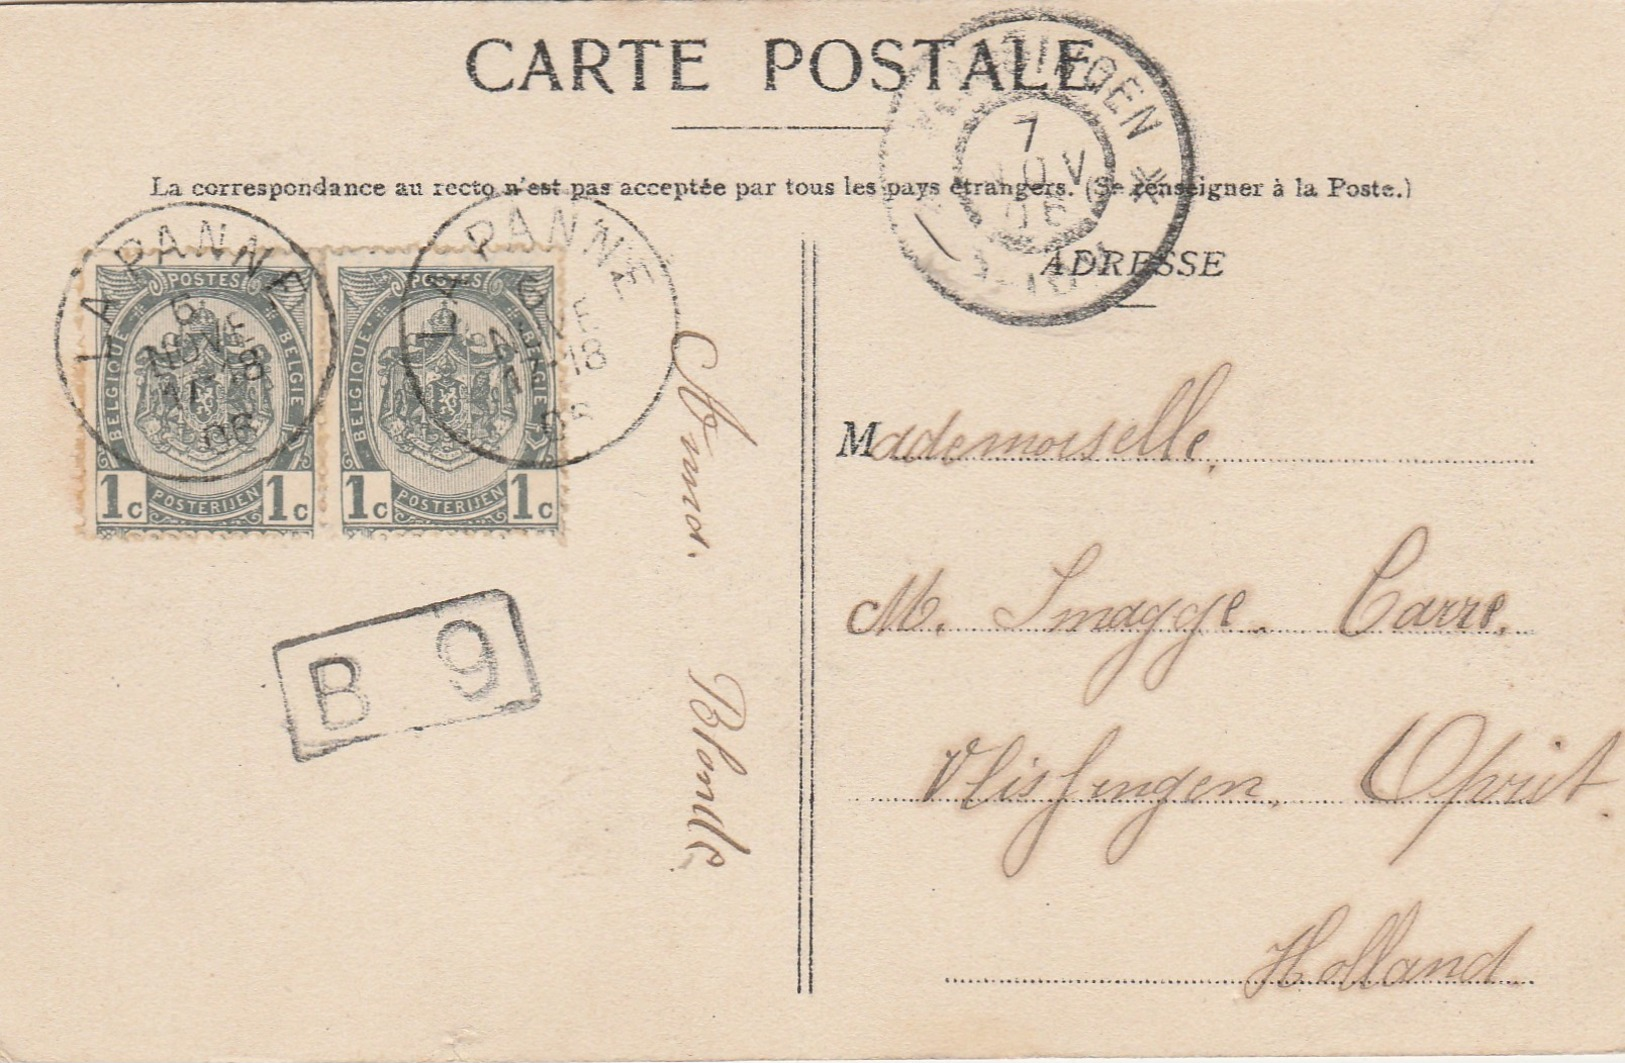 CARTE POSTALE
La correspondance au recto n'est pas acceptée par tous les pays étrangers. (Se renseigner à la Poste.)
7
NOV
06
ADRESSE
LA PANNE
6
NOVE
17-18
06
LA PANNE
6
NOVE
17-18
06
POSTES
BELGIQUE
BELGIE
POSTERIJEN
1c 1c
POSTES
BELGIQUE
BELGIE
POSTERIJEN
1c 1c
B 9
Blonde
Mademoiselle,
M. Smagge. Carre,
Vlissingen, Oprit.
Holland